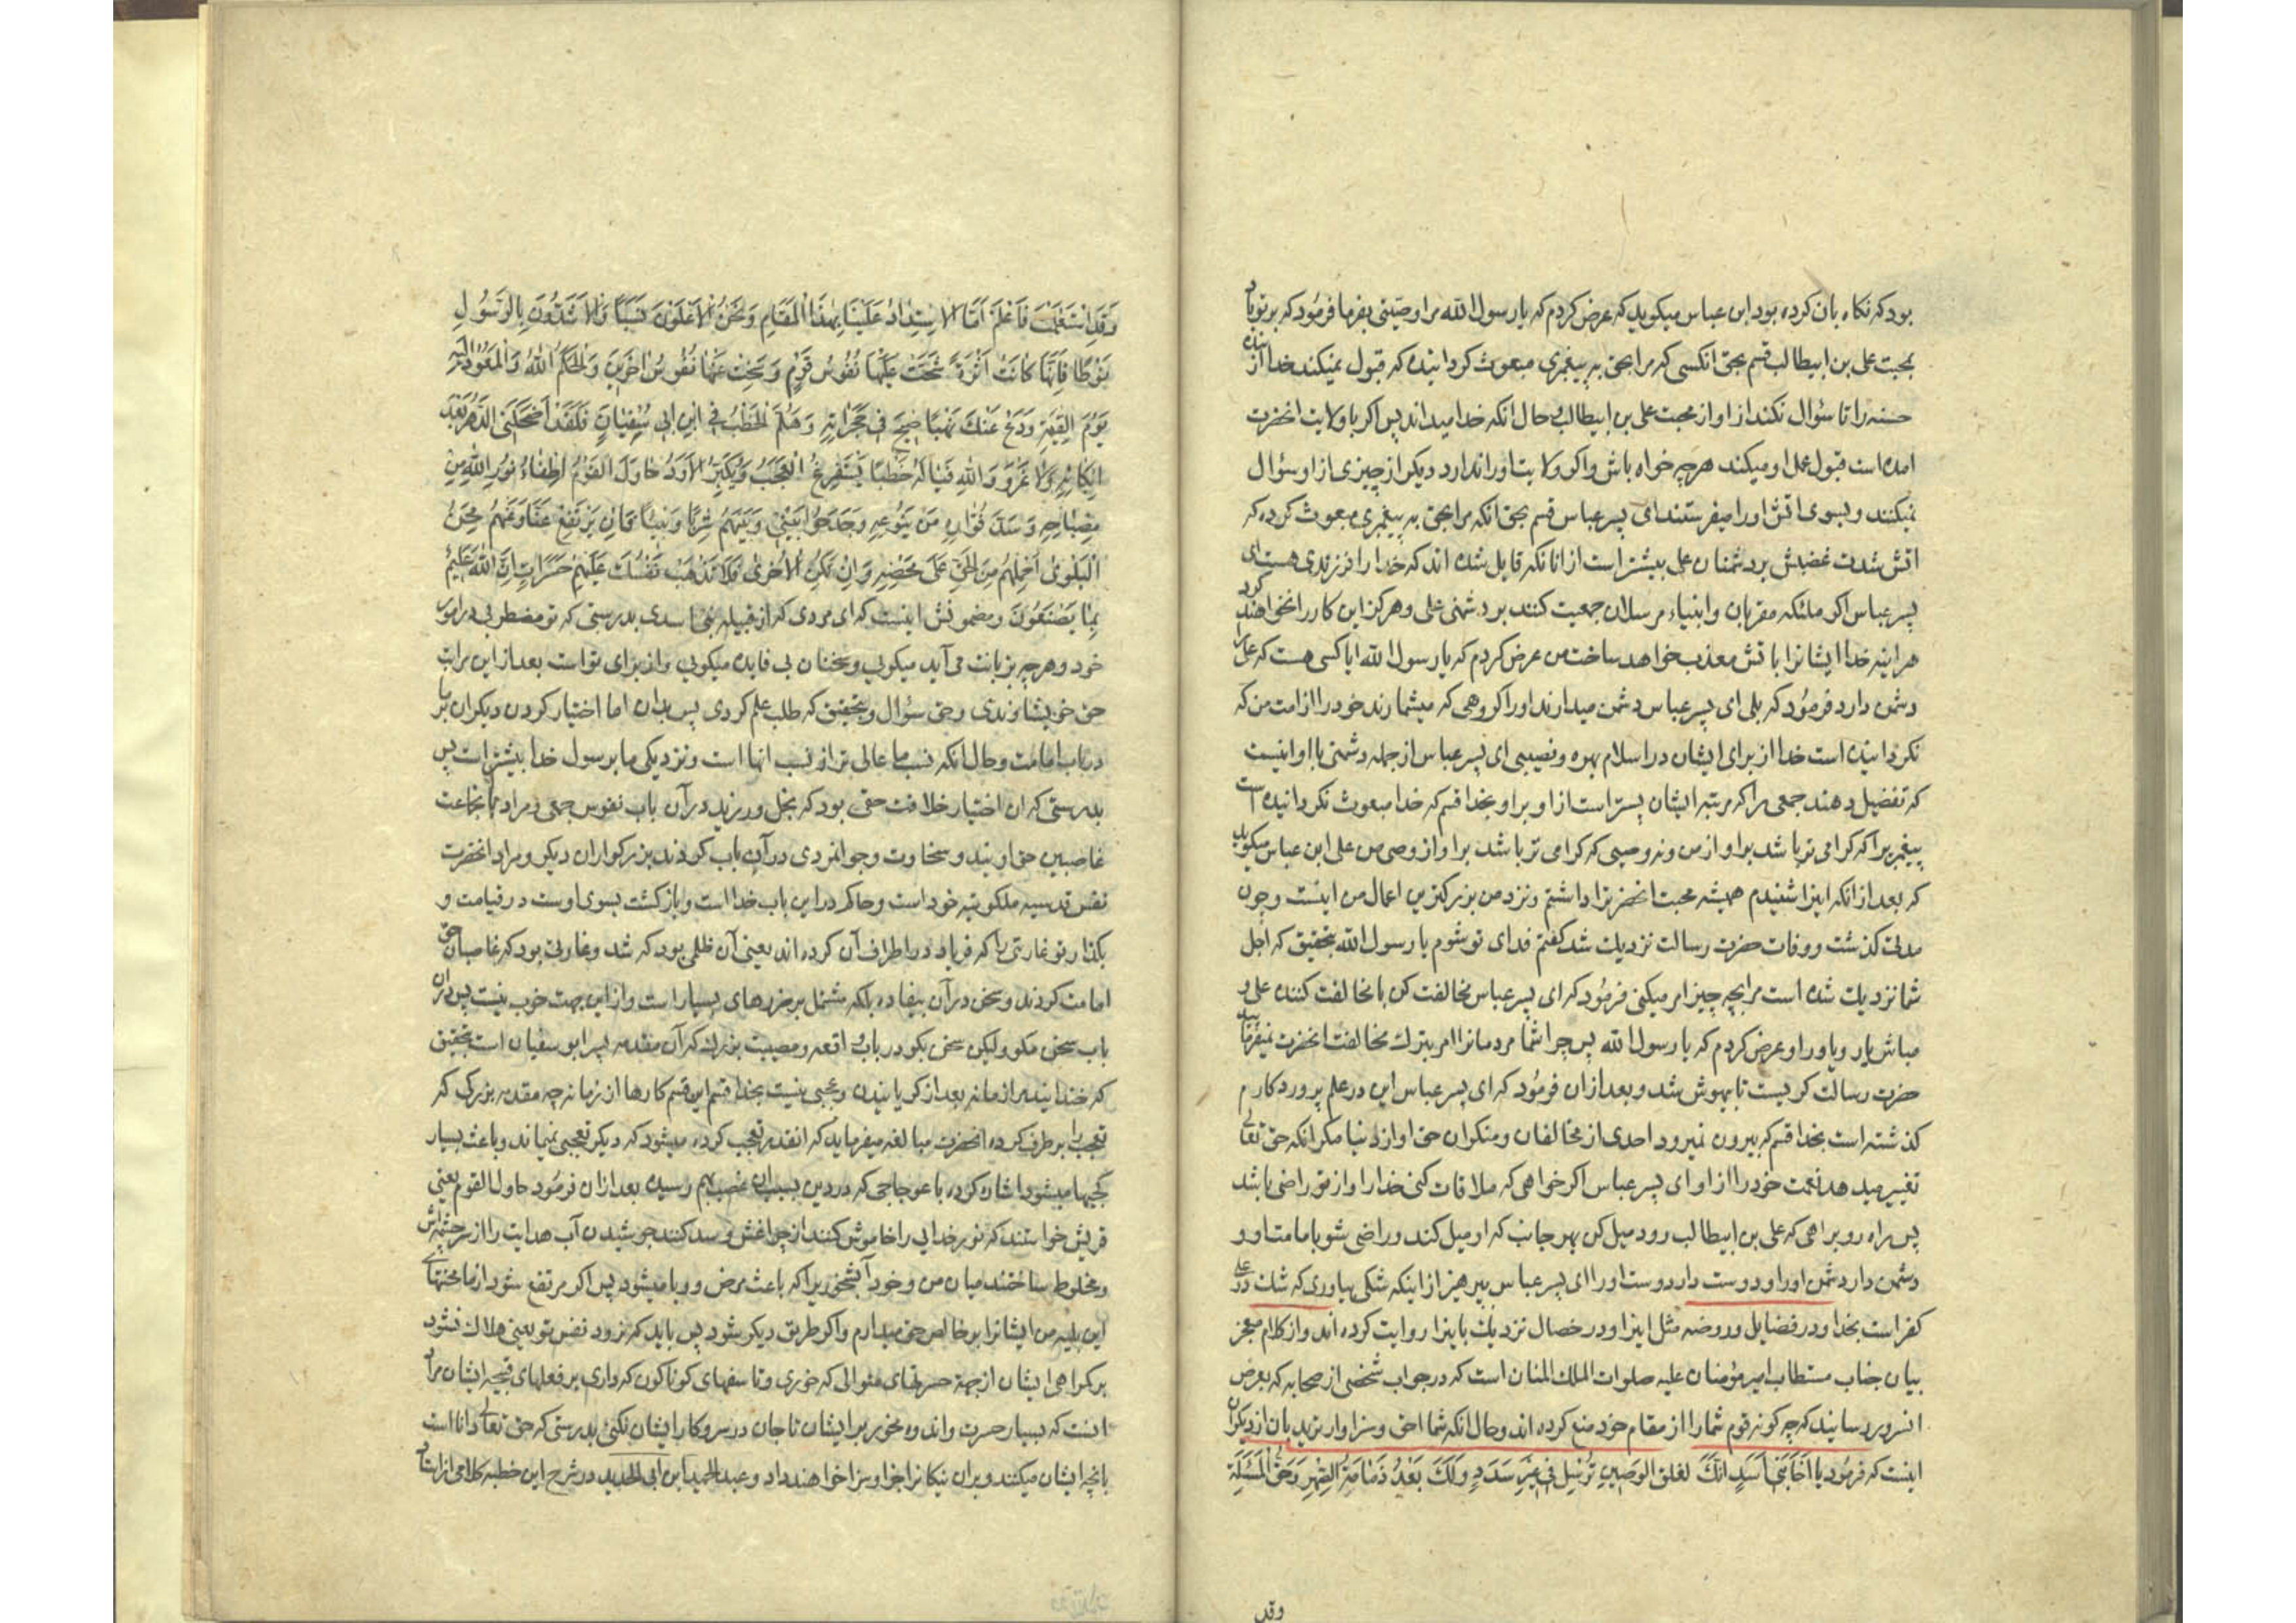 بود که نکاه بان کرده بود ابن عباس میکوید که عرض کردم که یا رسول الله مرا وصیتی بفرما فرمود که بر تو باد
بمحبت علی بن ابیطالب قسم بحق انکسی که مرا بحق به پیغمبری مبعوث کردانیده که قبول نمیکند خدا از بنده
حسنه را تا سؤال نکند از او از محبت علی بن ابیطالب و حال انکه خدا میداند پس اکر با ولایت انحضرت
امده است قبول عمل او میکند هر چه خواه باش و اکر ولایت او را ندارد دیکر از چیزی از او سؤال
نمیکند و بسوی اتش او را میفرستند ای پسر عباس قسم بحق انکه مرا بحق به پیغمبری مبعوث کرده که
اتش شدت غضبش بر دشمنان علی بیشتر است از انانکه قایل شده اند که خدا را فرزندی هست ای
پسر عباس اکر ملئکه مقربان و انبیاء مرسلان جمعیت کنند بر دشمنی علی و هرکز این کار را نخواهند کرد
هر اینه خدا ایشانرا باتش معذب خواهد ساخت من عرض کردم که یا رسول الله ایا کسی هست که علی را
دشمن دارد فرمود که بلی ای پسر عباس دشمن میدارند او را کروهی که میشمارند خود را از امت من که
نکردانیده است خدا از برای ایشان در اسلام بهره و نصیبی ای پسر عباس از جمله دشمنی با او اینست
که تفضیل دهند جمعی را که مرتبه ایشان پستر است از او بر او بخدا قسم که خدا مبعوث نکردانیده است
پیغمبریرا که کرامی تر باشد بر او از من و نه وصیی که کرامی تر باشد بر او از وصی من علی ابن عباس میکوید
که بعد از انکه اینرا شنیدم همیشه محبت انحضرترا داشتم و نزد من بزرکترین اعمال من اینست و چون
مدتی کذشت و وفات حضرت رسالت نزدیک شد کفتم فدای تو شوم یا رسول الله بتحقیق که اجل
شما نزدیک شده است مرا بچه چیز امر میکنی فرمود که ای پسر عباس مخالفت کن با مخالفت کننده علی و
مباش یار و یاور او عرض کردم که یا رسول الله پس چرا شما مردمانرا امر بترک مخالفت انحضرت نمیفرمائید
حضرت رسالت کریست تا بیهوش شد و بعد از ان فرمود که ای پسر عباس این در علم پروردکارم
کذشته است بخدا قسم که بیرون نمیرود احدی از مخالفان و منکران حق او از دنیا مکر انکه حق تعالی
تغییر میدهد نعمت خود را از او ای پسر عباس اکر خواهی که ملاقات کنی خدا را و از تو راضی باشد
پس راه رو براهی که علی بن ابیطالب رود میل کن بهر جانب که او میل کند و راضی شو بامامت او و
دشمن دار دشمن او را و دوست دار دوست او را ای پسر عباس بپرهیز از اینکه شکی بیاوری که شک در علی
کفر است بخدا و در فضایل و روضه مثل اینرا و در خصال نزدیک باینرا روایت کرده اند و از کلام معجز
بیان جناب مستطاب امیر مؤمنان علیه صلوات الملک المنان است که در جواب شخصی از صحابه که بعرض
انسرور رسانید که چه کونه قوم شما را از مقام خود منع کرده اند و حال انکه شما احق و سزاوارترید بان از دیکران
اینست که فرمود یا اَخَا بَنِی اَسَدٍ اِنَّکَ لَقَلِقُ الوَضِینِ تُرْسِلُ فِی غَیْرِ سَدَدٍ وَلَکَ بَعْدُ ذَمَامَةُ الصِّهْرِ وَحَقُّ الْمَسْئَلَةِ
وقد
وَقَدِ اسْتَعْلَمْتَ فَاعْلَمْ اَمَّا الاِسْتِبْدَادُ عَلَیْنَا بِهٰذَا الْمَقَامِ وَنَحْنُ الْاَعْلَوْنَ نَسَبًا وَالْاَشَدُّونَ بِالرَّسُولِ
نَوْطًا فَاِنَّهَا کَانَتْ اَثَرَةً شَحَّتْ عَلَیْهَا نُفُوسُ قَوْمٍ وَسَخَتْ عَنْهَا نُفُوسُ اٰخَرِینَ وَالْحَکَمُ اللّٰهُ وَالْمَعْوَدُ اِلَیْهِ
یَوْمَ الْقِیٰمَةِ وَدَعْ عَنْکَ نَهْبًا صِیحَ فِی حَجَرَاتِهِ وَهَلُمَّ الْخَطْبَ فِی ابْنِ اَبِی سُفْیَانَ فَلَقَدْ اَضْحَکَنِی الدَّهْرُ بَعْدَ
اِبْکَائِهِ وَلَا غَرْوَ وَاللّٰهِ فَیَا لَهُ خَطْبًا یَسْتَفْرِغُ الْعَجَبَ وَیُکْثِرُ الْاَوَدَ حَاوَلَ الْقَوْمُ اِطْفَاءَ نُورِ اللّٰهِ مِنْ
مِصْبَاحِهِ وَسَدَّ فَوَّارِهِ مِنْ یَنْبُوعِهِ وَجَدَحُوا بَیْنِی وَبَیْنَهُمْ شِرْبًا وَبِیئًا فَاِنْ یَرْتَفِعْ عَنَّا وَعَنْهُمْ مِحَنُ
الْبَلْوٰی اَحْمِلْهُمْ مِنَ الْحَقِّ عَلٰی مَحْضِهِ وَاِنْ تَکُنِ الْاُخْرٰی فَلَا تَذْهَبْ نَفْسُکَ عَلَیْهِمْ حَسَرَاتٍ اِنَّ اللّٰهَ عَلِیمٌ
بِمَا یَصْنَعُونَ و مضمونش اینست که ای مردی که از قبیله بنی اسدی بدرستی که تو مضطربی در امور
خود و هر چه بزبانت می آید میکوبی و سخنان بی فایده میکوبی و از برای تو است بعد از این مراتب
حق خویشاوندی و حق سؤال و بتحقیق که طلب علم کردی پس بدان اما اختیار کردن دیکران بر ما
در باب امامت و حال انکه نسب ما عالی تر از نسب انها است و نزدیکی ما برسول خدا بیشتر است پس
بدرستی که ان اختیار خلافت حقی بود که بخل ورزید در آن باب نفوس جمعی و مراد بجماعت
غاصبین حق اویند و سخاوت و جوانمردی در آن باب کردند بزرکواران دیکر و مراد انحضرت
نفس قدسیه ملکوتیه خود است و حاکم در این باب خدا است و بازکشت بسوی اوست در قیامت و
بکذار تو غارتی را که فریاد در اطراف آن کرده اند یعنی آن ظلمی بود که شد و غارتی بود که غاصبان حق
امامت کردند و سخن در آن بیفایده بلکه مشتمل بر ضررهای بسیار است و از این جهت خوب نیست پس در ان
باب سخن مکو ولیکن سخن بکو در باب واقعه و مصیبت بزرک که آن مقدمه پسر ابو سفیان است بتحقیق
که خندانید مرا زمانه بعد از کریانیدن و عجبی نیست بخدا قسم این قسم کارها از زمانه چه مقدمه بزرکی که
تعجب را برطرف کرده انحضرت مبالغه میفرماید که انقدر تعجب کرده میشود که دیکر تعجبی نمیماند و باعث بسیار
کجیها میشود اشاره کرده باعوجاجی که در دین بسبب ان غصب بهم رسیده بعد از ان فرمود حاول القوم یعنی
قریش خواستند که نور خدایی را خاموش کنند از چراغش و سد کنند جوشیدن آب هدایت را از سرچشمه اش
و مخلوط ساختند میان من و خود آبشخوریرا که باعث مرض و وبا میشود پس اکر مرتفع شود از ما محنتهای
این بلیه من ایشانرا بر خالص حق میدارم و اکر طریق دیکر شود پس باید که نرود نفس تو یعنی هلاک نشود
بر کمراهی ایشان از جهة حسرتهای متوالی که خوری و تاسفهای کوناکون که داری بر فعلهای قبیحه ایشان مراد
اینست که بسیار حسرت و اندوه مخور بر ایشان تا جان در سر و کار ایشان نکنی بدرستی که حق تعالی دانا است
بانچه ایشان میکنند و بران نیکانرا جزا و سزا خواهند داد و عبد الحمید ابن ابی الحدید در شرح این خطبه کلامی از استاد